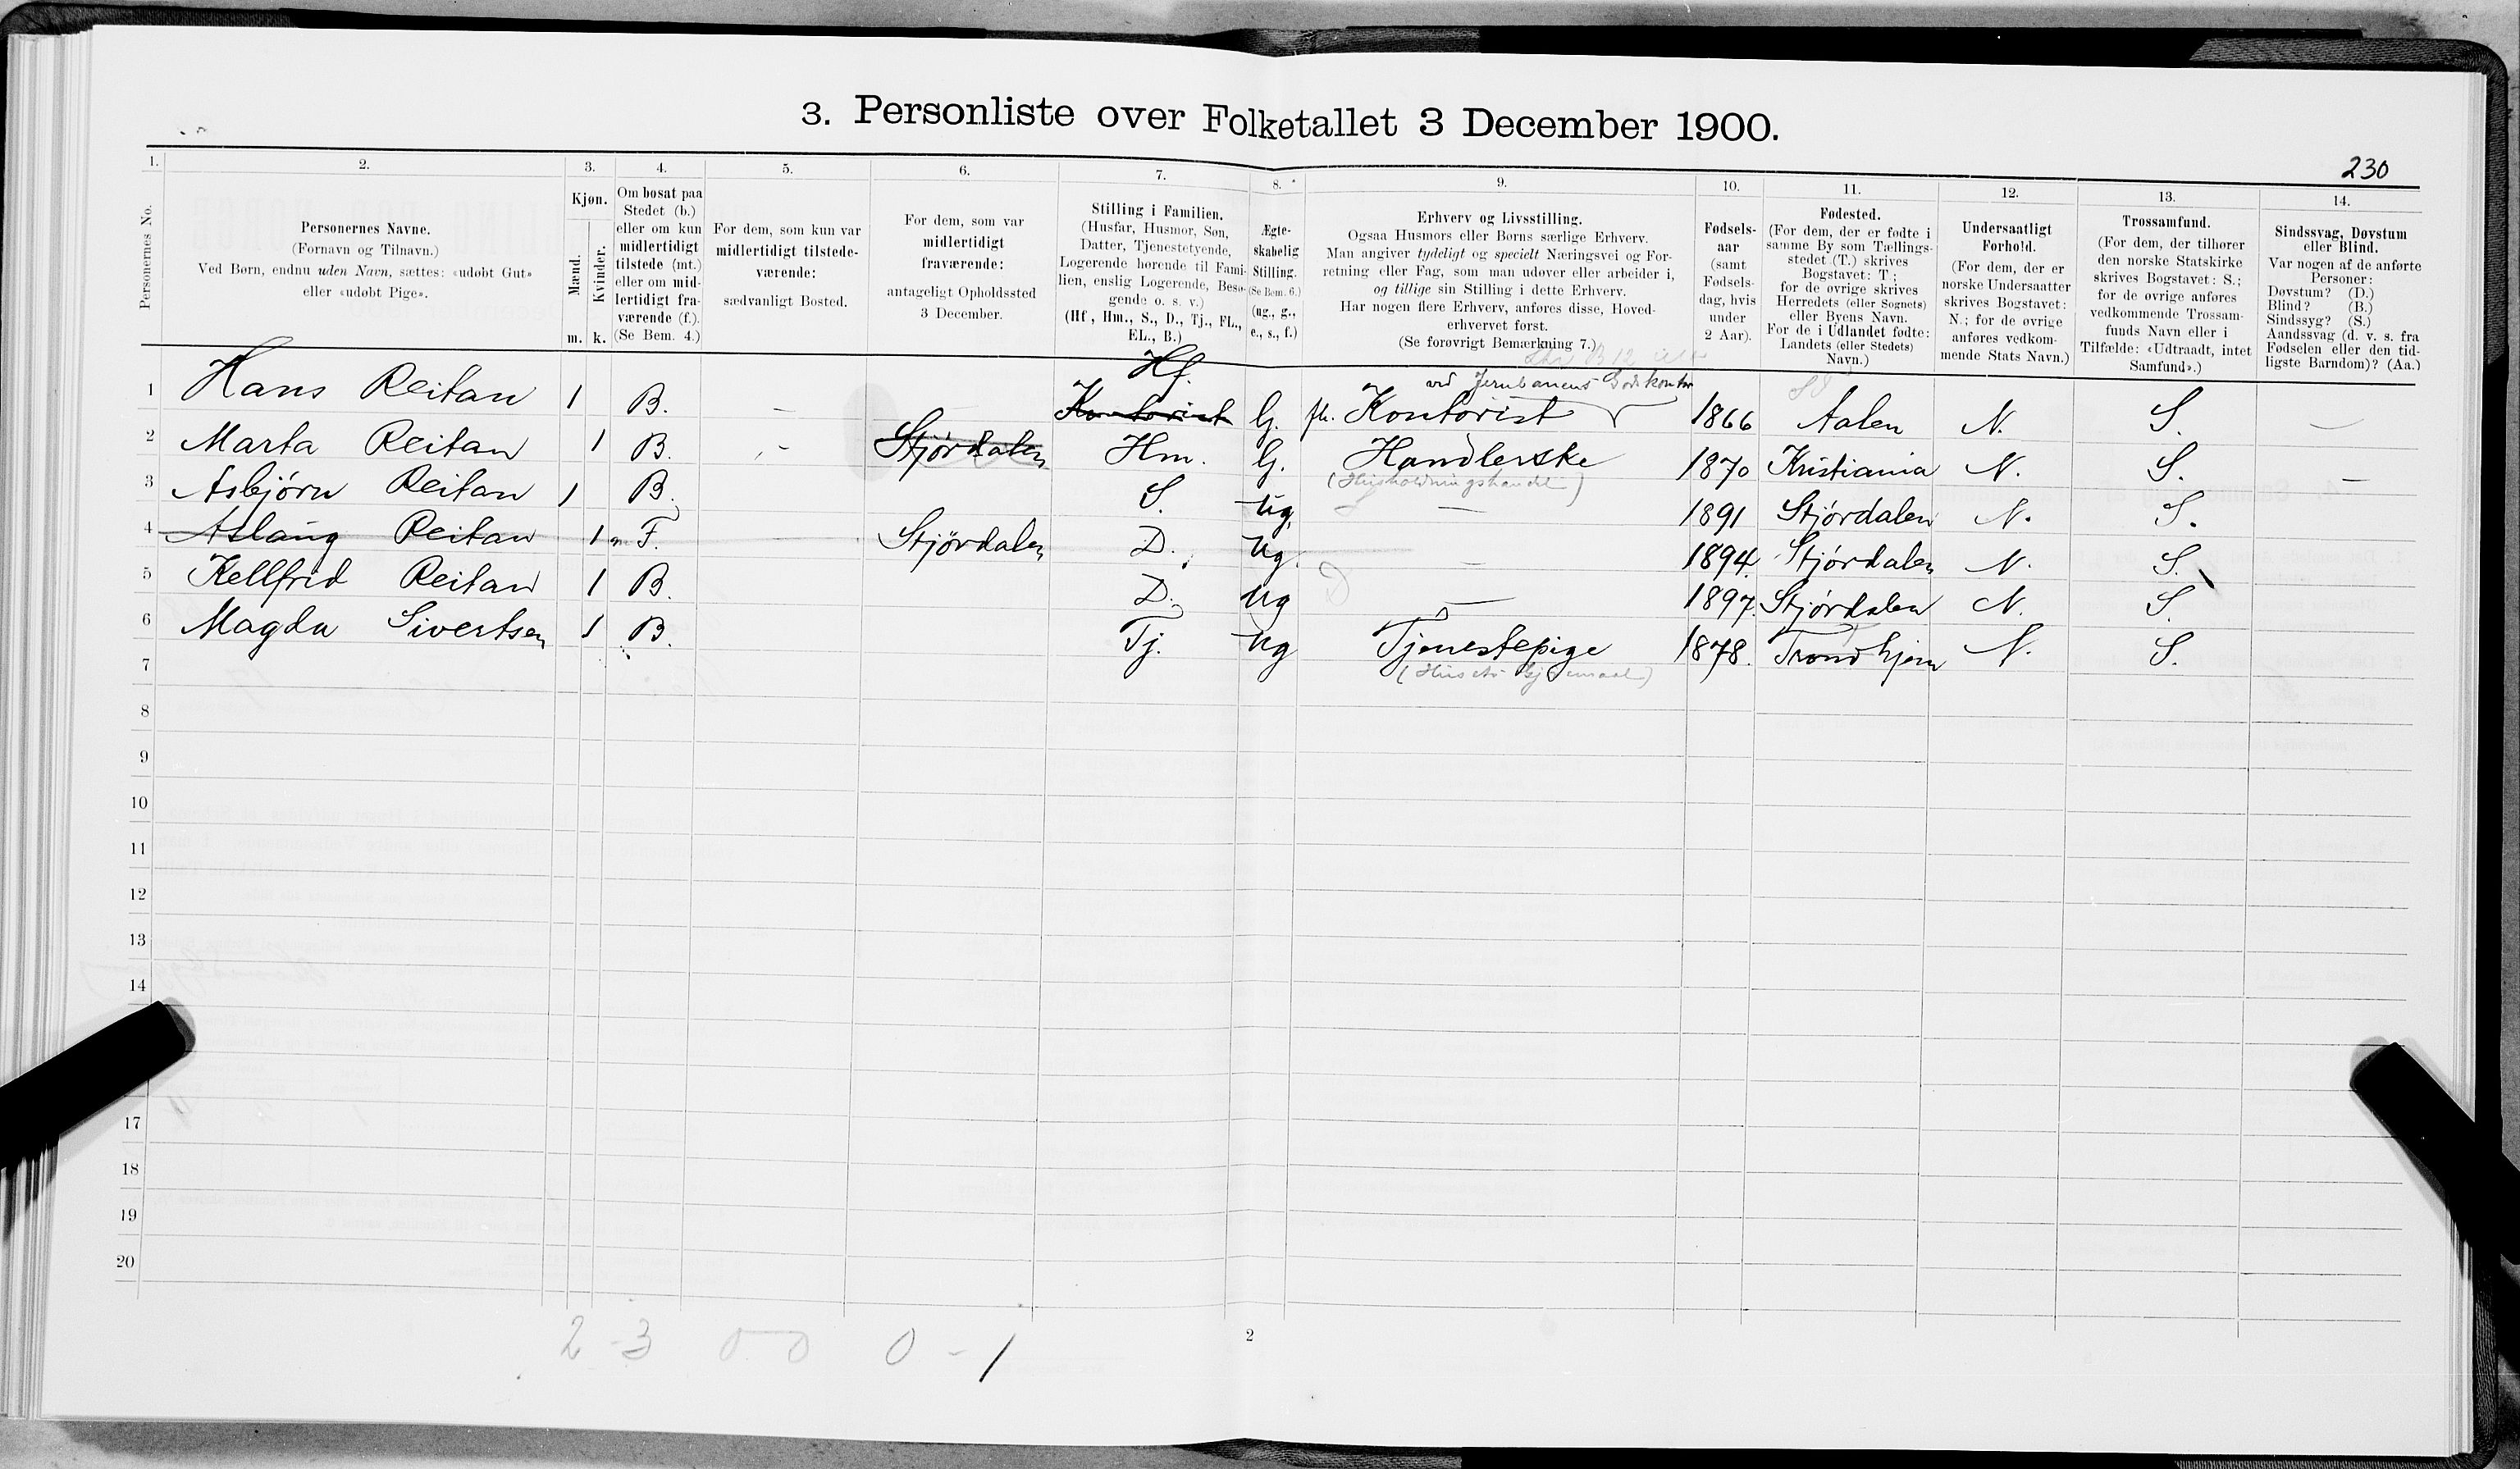 3. Personliste over Folketallet 3 December 1900.
230
1. 2. 3. 4. 5. 6. 7. 8. 9. 10. 11. 12. 13. 14.
Personernes No.
Personernes Navne.
(Fornavn og Tilnavn.)
Ved Børn, endnu uden Navn, sættes: «udøbt Gut»
eller «udøbt Pige».
Kjøn.
Mænd.
Kvinder.
m. k.
Om bosat paa
Stedet (b.)
eller om kun
midlertidigt
tilstede (mt.)
eller om mid-
lertidigt fra-
værende (f.).
(Se Bem. 4.)
For dem, som kun var
midlertidigt tilstede-
værende:
sædvanligt Bosted.
For dem, som var
midlertidigt
fraværende:
antageligt Opholdssted
3 December.
Stilling i Familien.
(Husfar, Husmor, Søn,
Datter, Tjenestetyende,
Logerende hørende til Fami-
lien, enslig Logerende, Besø-
gende o. s. v.)
(Hf., Hm., S., D., Tj., FL.,
EL., B.)
Ægte-
skabelig
Stilling.
(Se Bem. 6.)
(ug., g.,
e., s., f.)
Erhverv og Livsstilling.
Ogsaa Husmors eller Børns særlige Erhverv.
Man angiver tydeligt og specielt Næringsvei og For-
retning eller Fag, som man udøver eller arbeider i,
og tillige sin Stilling i dette Erhverv.
Har nogen flere Erhverv, anføres disse, Hoved-
erhvervet først.
(Se forøvrigt Bemærkning 7.)
Fødsels-
aar
(samt
Fødsels-
dag, hvis
under
2 Aar).
Fødested.
(For dem, der er fødte i
samme By som Tællings-
stedet (T.) skrives
Bogstavet: T.;
for de øvrige skrives
Herredets (eller Sognets)
eller Byens Navn.
For de i Udlandet fødte:
Landets (eller Stedets)
Navn.)
Undersaatligt
Forhold.
(For dem, der er
norske Undersaatter
skrives Bogstavet:
N.; for de øvrige
anføres vedkom-
mende Stats Navn.)
Trossamfund.
(For dem, der tilhører
den norske Statskirke
skrives Bogstavet: S.;
for de øvrige anføres
vedkommende Trossam-
funds Navn eller i
Tilfælde: «Udtraadt, intet
Samfund».)
Sindssvag, Døvstum
eller Blind.
Var nogen af de anførte
Personer:
Døvstum? (D.)
Blind? (B.)
Sindssyg? (S.)
Aandssvag (d. v. s. fra
Fødselen eller den tid-
ligste Barndom)? (Aa.)
Hf. ved Jernbanens Godskontor
1 Hans Reitan 1 B. - Kontorist G. Kontorist 1866 Aalen N. S. —
2 Marta Reitan 1 B. - Stjørdalen Hm. G. Handlerske 1870 Kristiania N. S. —
(Husholdningshandel)
3 Asbjørn Reitan 1 B. S. ug. — 1891 Stjørdalen N. S.
4 Aslaug Reitan 1 F. Stjørdalen D. ug. — 1894 Stjørdalen N. S.
5 Kellfrid Reitan 1 B. D. ug — 1897. Stjørdalen N. S.
6 Magda Sivertsen 1 B. Tj. ug Tjenestepige 1878. Trondhjem N. S.
7
8
9
10
11
12
13
14
17
18
19
20
2 - 3 0 - 0 0 - 1
2